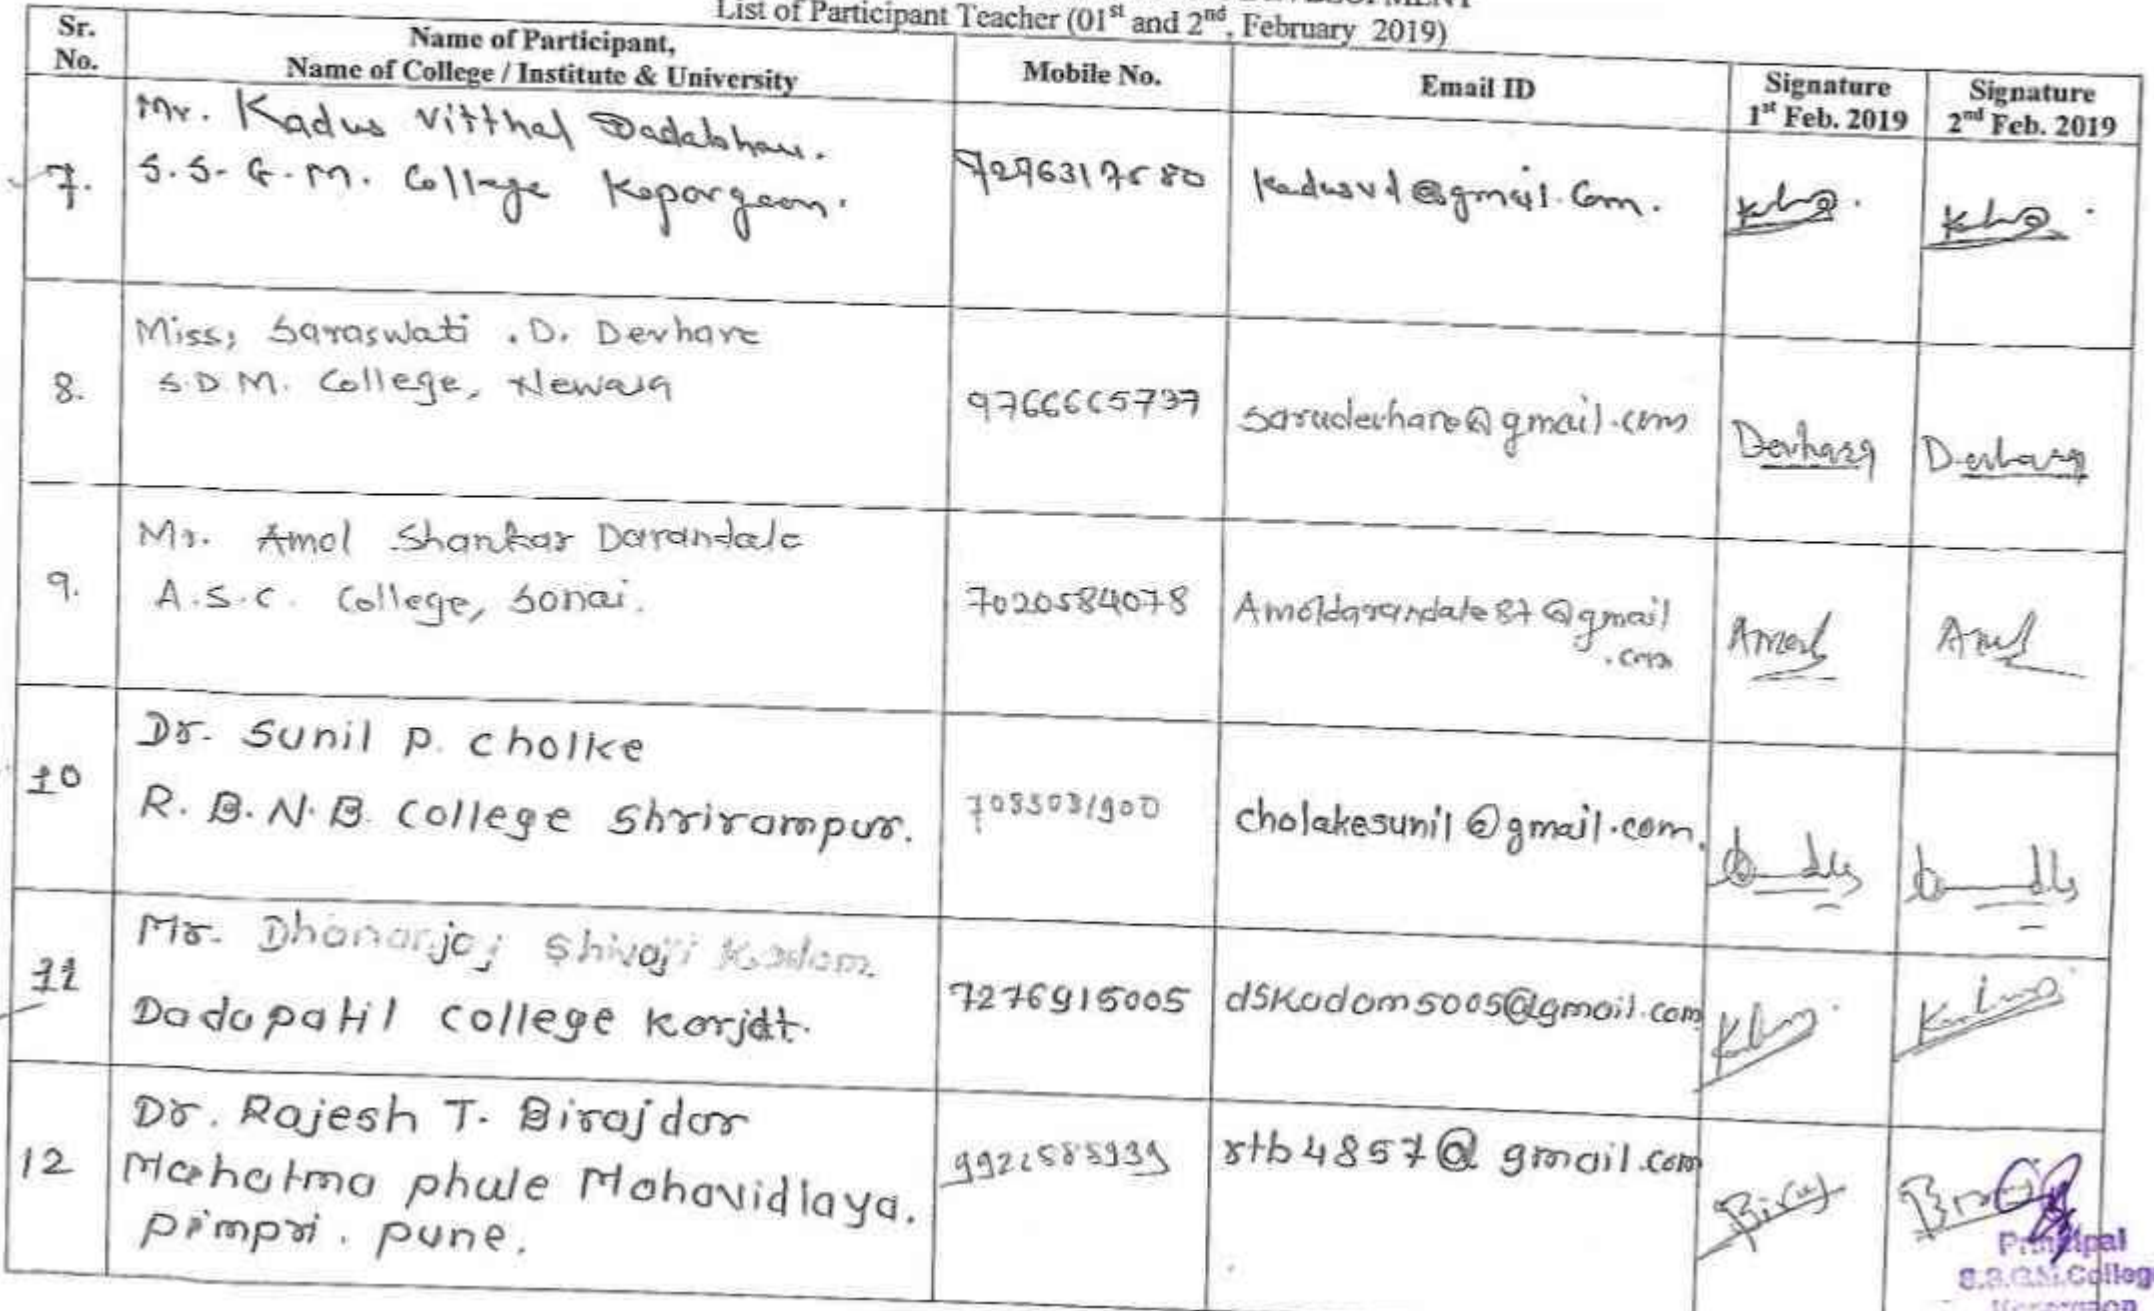 List of Participant Teacher (01st and 2nd, February 2019)
Sr. No.
Name of Participant,
Name of College / Institute & University
Mobile No.
Email ID
Signature
1st Feb. 2019
Signature
2nd Feb. 2019
7.
Mr. Kadus Vitthal Dadabhau.
S.S.G.M. College Kopargaon.
kadusvd@gmail.com.
8.
Miss; Saraswati .D. Devhare
S.D.M. College, Newasa
9766665737
sarudevhare@gmail.com
Devhare
Devhare
9.
Mr. Amol Shankar Darandale
A.S.C. College, Sonai.
7020584078
Amoldarandale87@gmail
.com
Amol
Amol
10
Dr. Sunil P. Cholke
R.B.N.B. College Shrirampur.
cholakesunil@gmail.com.
11
Mr. Dhananjaj Shivaji Kadam.
Dadapatil College Karjat.
7276915005
dskadam5005@gmail.com
12
Dr. Rajesh T. Birajdar
Mahatma phule Mahavidlaya.
pimpri. pune.
rtb4857@gmail.com
Principal
S.S.G.M. College